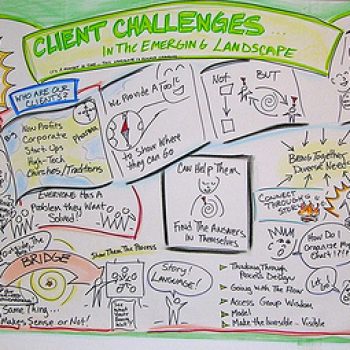 CLIENT CHALLENGES ...
IN THE EMERGING LANDSCAPE
WHO ARE OUR
CLIENTS?
Non Profits
Corporate
Start-Ups
High-Tech
Churches/Traditions
Pharma
We Provide A Tool
to Show Where
they Can Go
Not
BUT
Being Together
Diverse Needs
EVERYONE HAS A
Problem they Want
Solved
Can Help Them
Find The Answers
in Themselves
CONNECT
THROUGH
STORY
How Do I
Organize My
Chart?!?!
BRIDGE
Same Thing...
Makes Sense or Not!
Show Them The Process
Story!
LANGUAGE!
Thinking Through
Process Design
Going With The Flow
Access Group Wisdom
Model
Make the Invisible - Visible